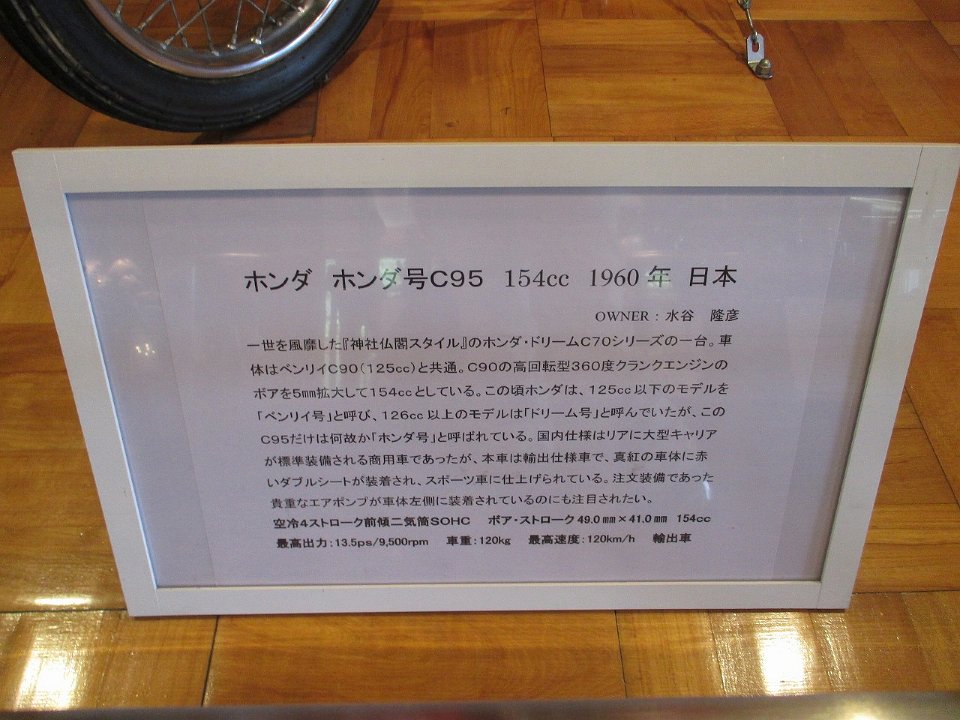 ホンダ ホンダ号C95 154cc 1960年 日本
OWNER : 水谷 隆彦
一世を風靡した『神社仏閣スタイル』のホンダ・ドリームC70シリーズの一台。車
体はベンリイC90(125cc)と共通。C90の高回転型360度クランクエンジンの
ボアを5mm拡大して154ccとしている。この頃ホンダは、125cc以下のモデルを
「ベンリイ号」と呼び、126cc以上のモデルは「ドリーム号」と呼んでいたが、この
C95だけは何故か「ホンダ号」と呼ばれている。国内仕様はリアに大型キャリア
が標準装備される商用車であったが、本車は輸出仕様車で、真紅の車体に赤
いダブルシートが装着され、スポーツ車に仕上げられている。注文装備であった
貴重なエアポンプが車体左側に装着されているのにも注目されたい。
空冷4ストローク前傾二気筒SOHC ボア・ストローク49.0mm×41.0mm 154cc
最高出力:13.5ps/9,500rpm 車重:120kg 最高速度:120km/h 輸出車